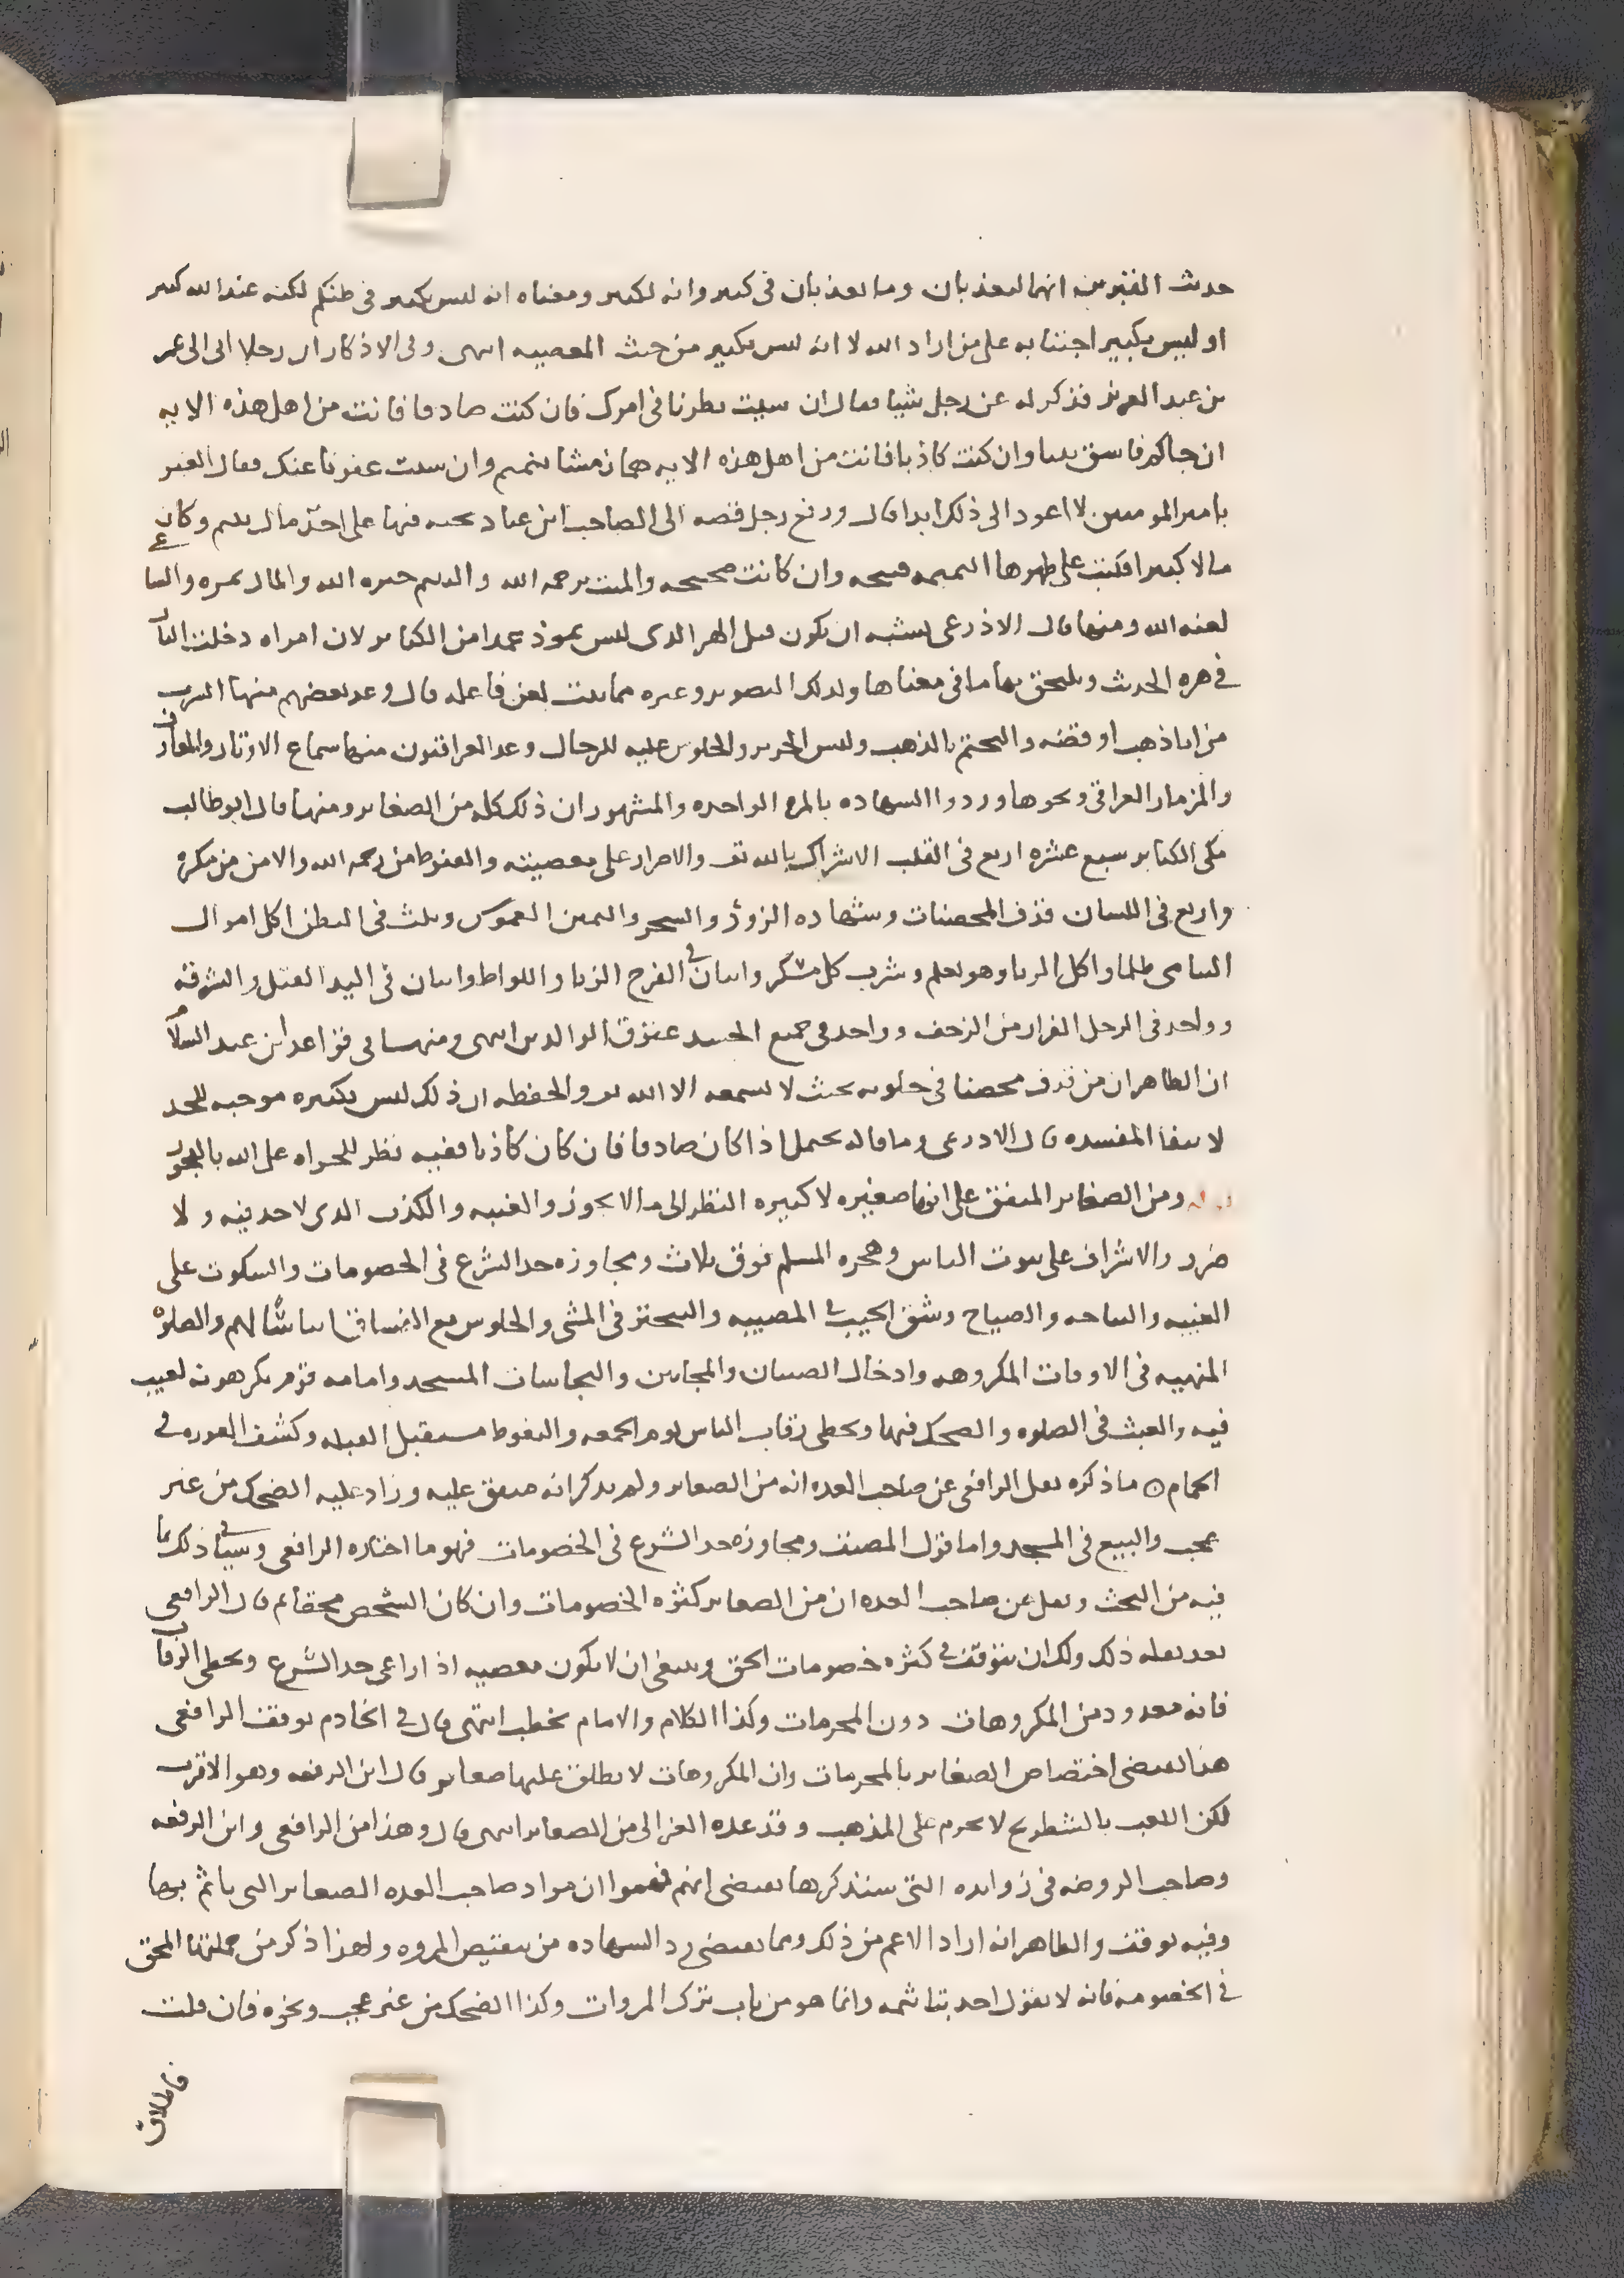 حديث القبرين انهما ليعذبان وما يعذبان في كبير وانه لكبير ومعناه انه ليس بكبير في ظنكم لكنه عند الله كبير
او ليس بكبير اجتنابه على من اراد الله لا انه ليس بكبير من حيث المعصيه انتهى وفي الاذكار ان رجلا اتى الى عمر
بن عبد العزيز فذكر له عن رجل شيا فقال ان شيت نظرنا في امرك فان كنت صادقا فانت من اهل هذه الايه
ان جاكم فاسق بنبا وان كنت كاذبا فانت من اهل هذه الايه هماز مشا بنميم وان شئت عفونا عنك فقال العفو
يا امير المومنين لا اعود الى ذلك ابدا قال ورفع رجل قصه الى الصاحب ابن عباد يحثه فيها على اخذ مال يتيم وكان
مالا كبيرا فكتب على ظهرها النميمه قبيحه وان كانت صحيحه والميت رحمه الله واليتيم جبره الله والمال ثمره والساعي
لعنه الله ومنها قال الاذرعي يشبه ان يكون قتل الهر الذي ليس بموذ عمدا من الكباير لان امراه دخلت النار
في هره الحديث ويلحق بها ما في معناها ولذلك التصوير وغيره مما ثبت لعن فاعله قال وعد بعضهم منها الشرب
من انا ذهب او فضه والتختم بالذهب ولبس الحرير والجلوس عليه للرجال وعد العراقيون منها سماع الاوتار والمعازف
والمزمار العراقي ونحوها وردوا الشهاده بالمره الواحده والمشهور ان ذلك كله من الصغاير ومنها قال ابو طالب
مكي الكباير سبع عشره اربع في القلب الاشراك بالله تع والاصرار على معصيته والقنوط من رحمه الله والامن من مكره
واربع في اللسان قذف المحصنات وشهاده الزور والسحر واليمين الغموس وثلث في البطن اكل اموال
اليتامى ظلما واكل الربا وهو يعلم وشرب كل مسكر واثنان في الفرج الزنا واللواط واثنان في اليد القتل والسرقه
وواحد في الرجل الفرار من الزحف وواحد في جميع الجسد عقوق الوالدين انتهى ومنها في قواعد ابن عبد السلام
ان الظاهر ان من قذف محصنا في خلوته بحيث لا يسمعه الا الله تع والحفظه ان ذلك ليس بكبيره موجبه للحد
لانتفا المفسده قال الاذرعي وما قاله يحتمل اذا كان صادقا فان كان كاذبا ففيه نظر للجراه على الله بالفجور
ومن الصغاير المتفق على انها صغيره لا كبيره النظر الى ما لا يجوز والغيبه والكذب الذي لا حد فيه ولا
ضرر والاشراف على بيوت الناس وهجره المسلم فوق ثلاث ومجاوزه حد الشرع في الخصومات والسكوت على
الغيبه والنياحه والصياح وشق الجيب في المصيبه والتبختر في المشي والجلوس مع الفساق ايناسا لهم والصلوه
المنهيه في الاوقات المكروهه وادخال الصبيان والمجانين والنجاسات المسجد وامامه قوم يكرهونه لعيب
فيه والعبث في الصلوه والضحك فيها وتخطي رقاب الناس يوم الجمعه والتغوط مستقبل القبله وكشف العوره في
الحمام ما ذكره نقل الرافعي عن صاحب العده انه من الصغاير ولم يذكر انه متفق عليه وزاد عليه الضحك من غير
عجب والبيع في المسجد واما قول المصنف ومجاوزه حد الشرع في الخصومات فهو ما اختاره الرافعي وسياتي ذلك بما
فيه من البحث ونقل عن صاحب العده ان من الصغاير كثره الخصومات وان كان الشخص محقا ثم قال الرافعي
بعد نقله ذلك ولك ان تتوقف في كثره خصومات الحق وينبغي ان لا يكون معصيه اذا راعى حد الشرع وتخطي الرقاب
فانه معدود من المكروهات دون المحرمات وكذا الكلام والامام يخطب انتهى قال في الخادم توقف الرافعي
هنا يقتضي اختصاص الصغاير بالمحرمات وان المكروهات لا يطلق عليها صغاير قال ابن الرفعه وهو الاقرب
لكن اللعب بالشطرنج لا يحرم على المذهب وقد عده الغزالي من الصغاير انتهى قال وهذا من الرافعي وابن الرفعه
وصاحب الروضه في زوايده التي سنذكرها يقتضي انهم فهموا ان مراد صاحب العده الصغاير التي ياثم بها
وفيه توقف والظاهر انه اراد الاعم من ذلك ومما يقتضي رد الشهاده من تنقيص المروه ولهذا ذكر من جملتها المحق
في الخصومه فانه لا يقول احد بتاثيمه وانما هو من باب ترك المروات وكذا الضحك من غير عجب ونحوه فان قلت
فاطلاق